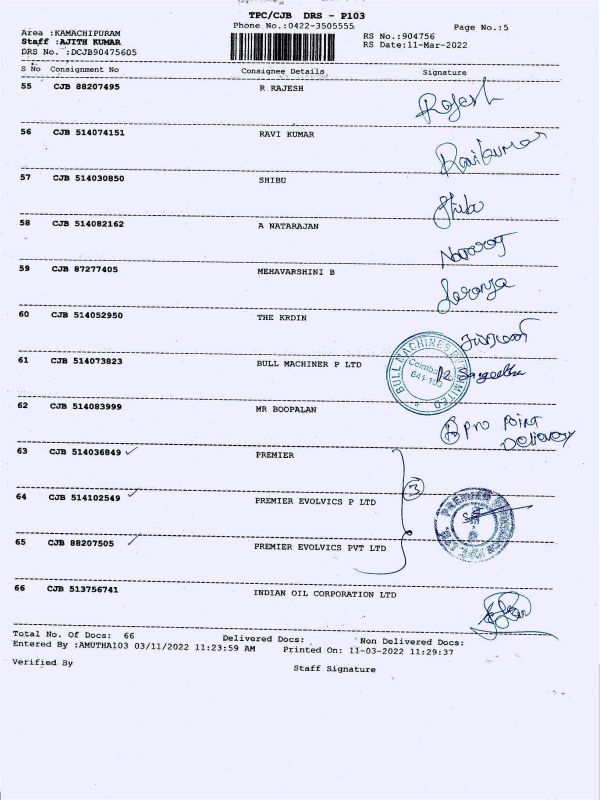 TPC/CJB DRS - P103
Phone No.:0422-3505555
Page No.:5
Area :KAMACHIPURAM
RS No.:904756
Staff :AJITH KUMAR
RS Date:11-Mar-2022
DRS No. :DCJB90475605
S No Consignment No Consignee Details Signature
55 CJB 88207495 R RAJESH Rajesh
56 CJB 514074151 RAVI KUMAR Ravikumar
57 CJB 514030850 SHIBU Shibu
58 CJB 514082162 A NATARAJAN
59 CJB 87277405 MEHAVARSHINI B Saranya
60 CJB 514052950 THE KRDIN
61 CJB 514073823 BULL MACHINER P LTD BULL MACHINES PVT LIMITED 641 Sangeetha
62 CJB 514083999 MR BOOPALAN Pro Point
Delivery
63 CJB 514036849 PREMIER
3
64 CJB 514102549 PREMIER EVOLVICS P LTD PREMIER
65 CJB 88207505 PREMIER EVOLVICS PVT LTD
66 CJB 513756741 INDIAN OIL CORPORATION LTD
Total No. Of Docs: 66 Delivered Docs: Non Delivered Docs:
Entered By :AMUTHA103 03/11/2022 11:23:59 AM Printed On: 11-03-2022 11:29:37
Verified By Staff Signature